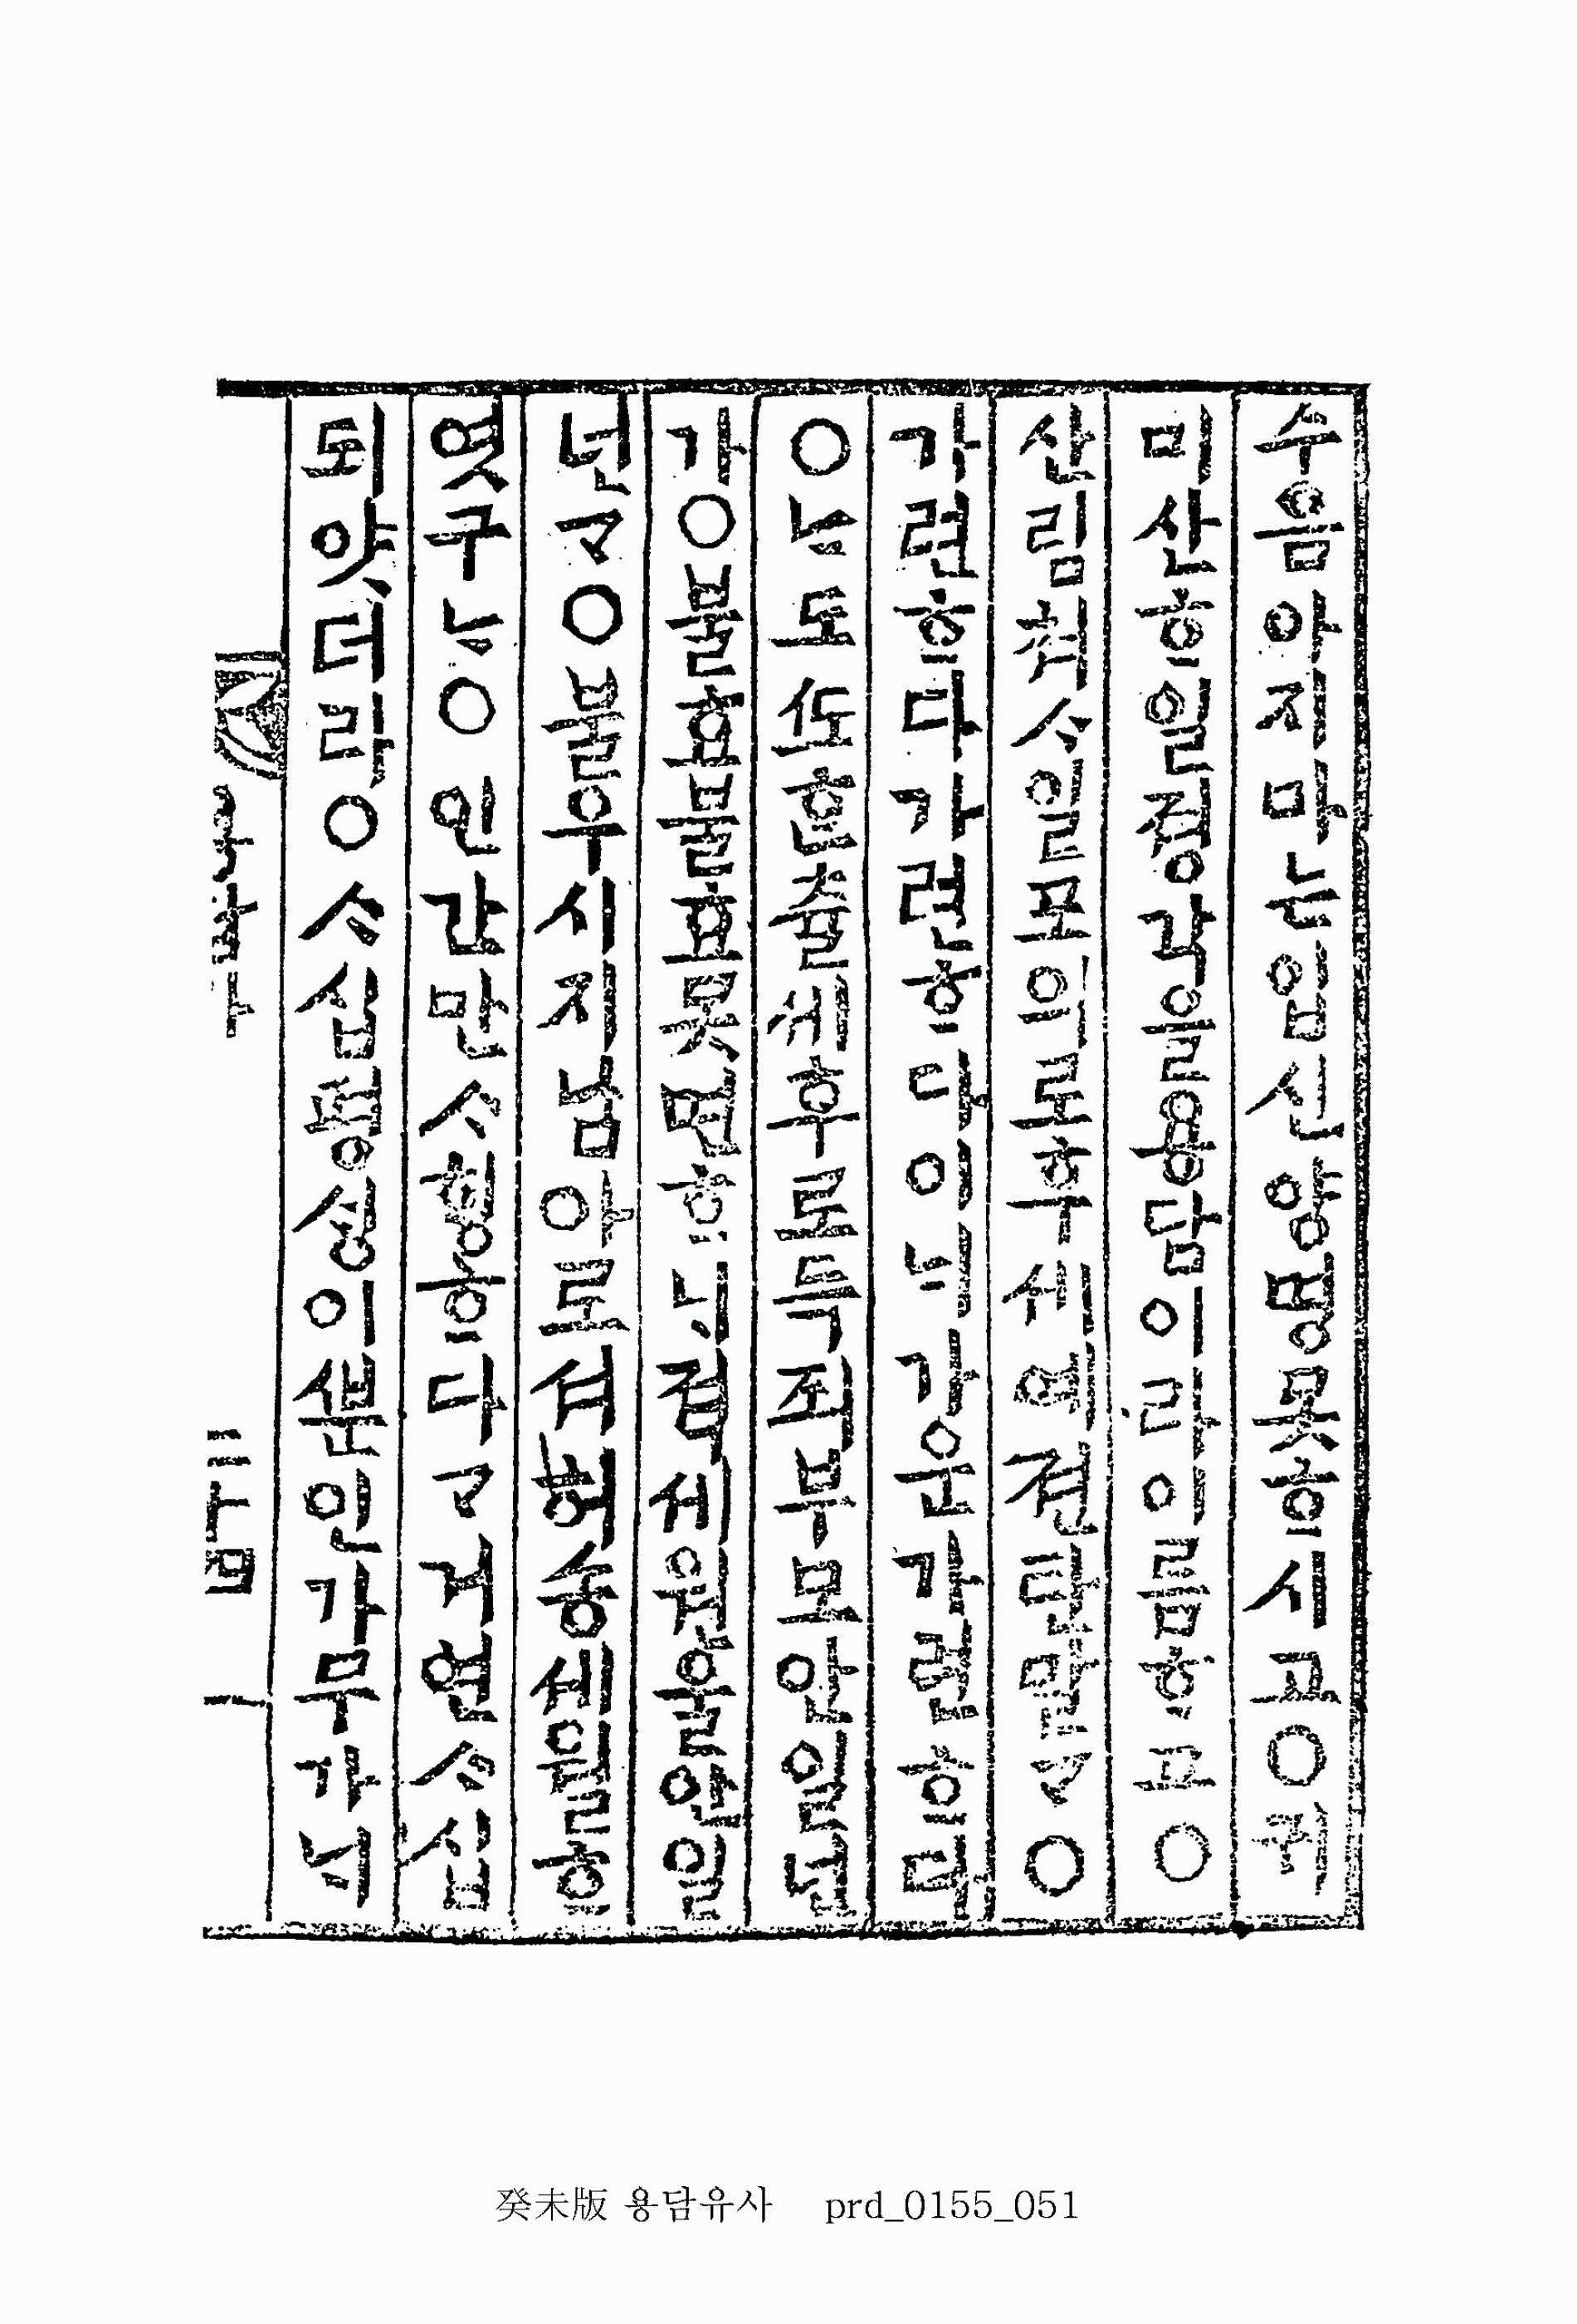 수음아지마는입신양명못ᄒᆞ시고○귀
미산ᄒᆞ일졍각을용담이라이름ᄒᆞ고○
산림쳐ᄉᆞ일포의로후셰예젼탄말ᄀᆞ○
가련ᄒᆞ다가련ᄒᆞ다이ᄂᆡ가운가련ᄒᆞ다
○ᄂᆞ도ᄯᅩᄒᆞᆫ출셰후로득죄부모안일넌
가○불효불효못면ᄒᆞ니젹셰원울안일
넌ᄀᆞ○불우시지남아로셔허송셰월ᄒᆞ
엿구ᄂᆞ○인간만ᄉᆞᄒᆡᆼᄒᆞ다ᄀᆞ거연ᄉᆞ십
되얏더라○ᄉᆞ십평ᄉᆡᆼ이ᄲᅮᆫ인가무가
癸未版 용담유사 prd_0155_051